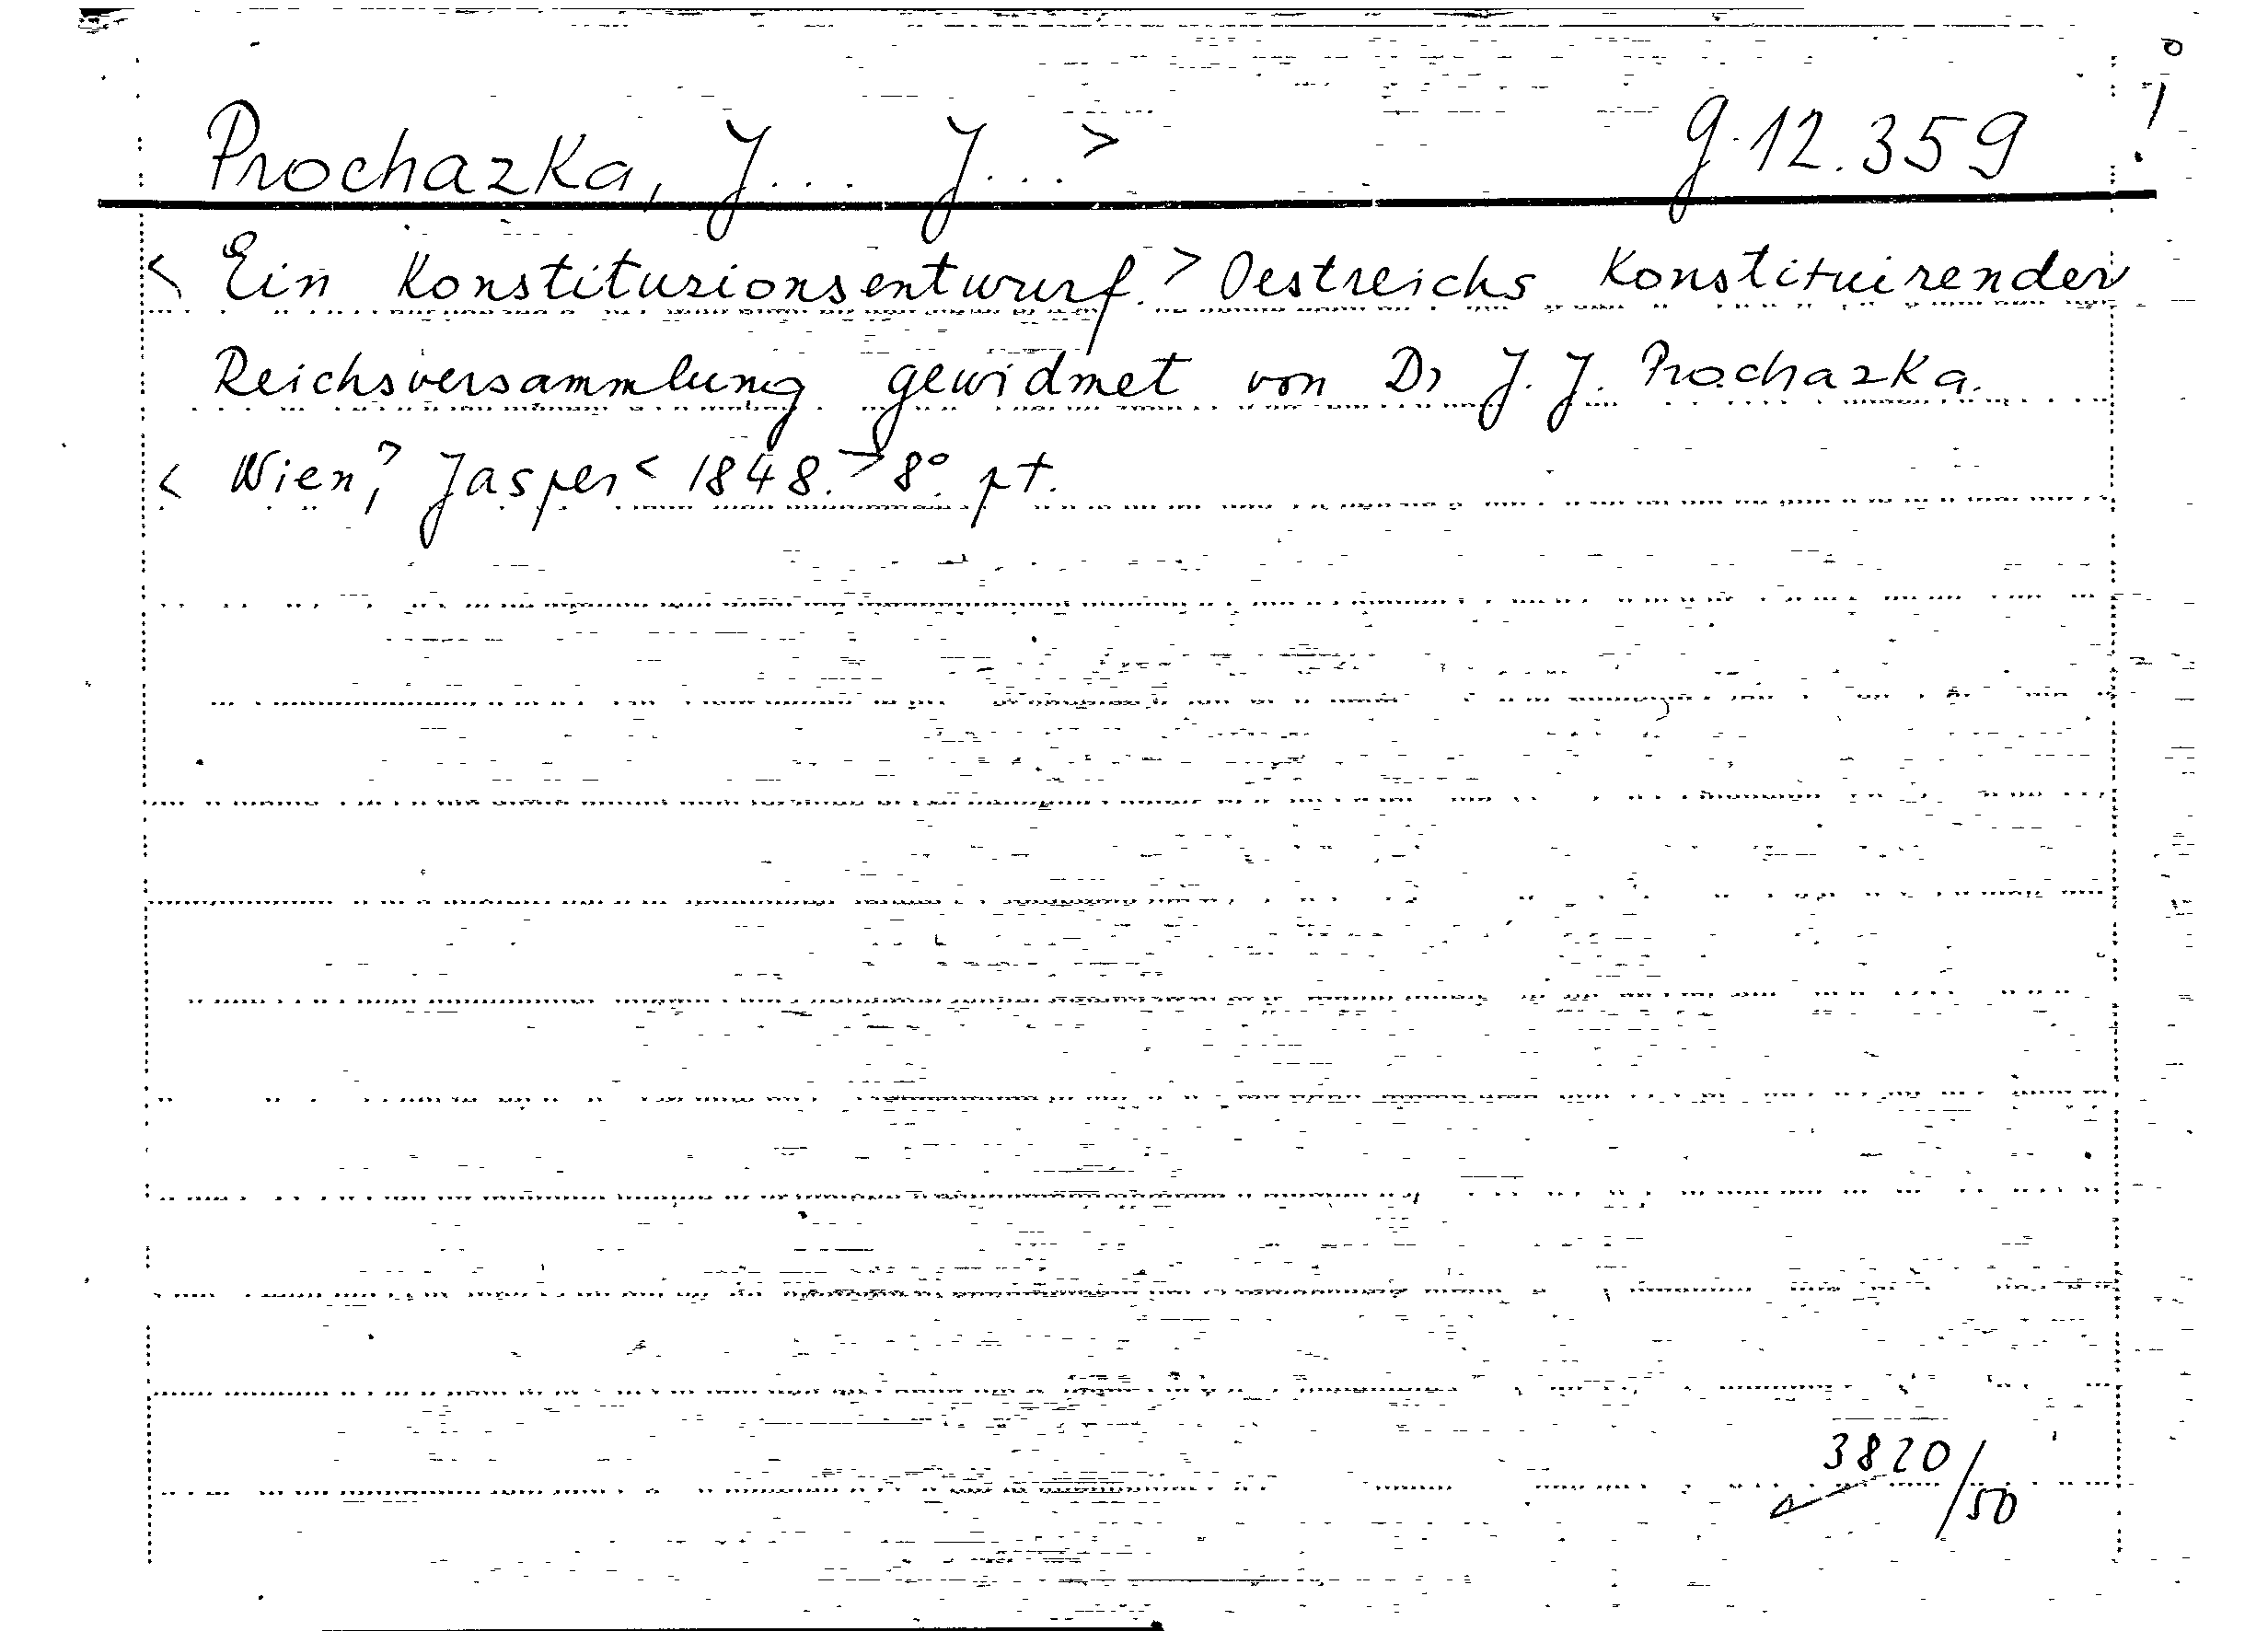 Prochazka, J... J...> g.12.359 !
< Ein Konstituzionsentwurf.> Oestreichs Konstituirender
Reichsversammlung gewidmet von Dr J. J. Prochazka.
< Wien,> Jasper < 1848.> 8°. pt.
3820/50